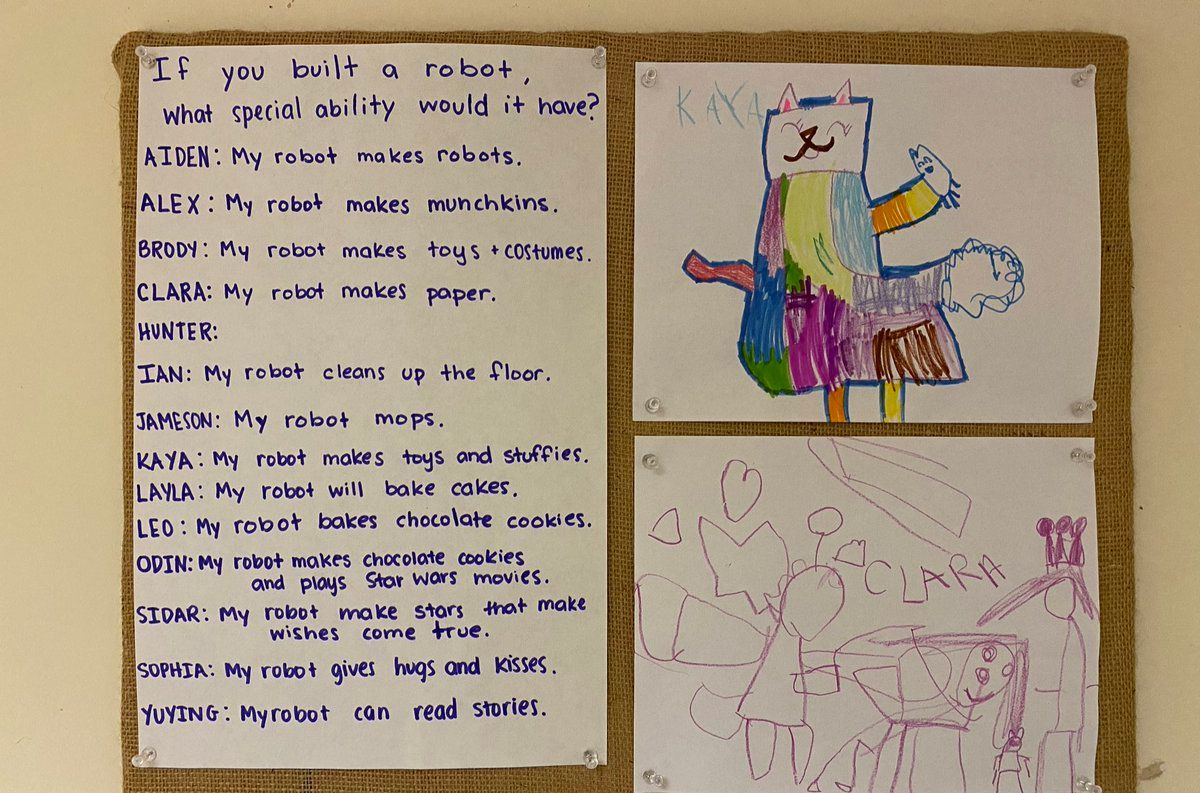 If you built a robot,
what special ability would it have?
AIDEN: My robot makes robots.
ALEX: My robot makes munchkins.
BRODY: My robot makes toys + costumes.
CLARA: My robot makes paper.
HUNTER:
IAN: My robot cleans up the floor.
JAMESON: My robot mops.
KAYA: My robot makes toys and stuffies.
LAYLA: My robot will bake cakes.
LEO: My robot bakes chocolate cookies.
ODIN: My robot makes chocolate cookies
and plays Star Wars movies.
SIDAR: My robot make stars that make
wishes come true.
SOPHIA: My robot gives hugs and kisses.
YUYING: My robot can read stories.
KAYA
CLARA